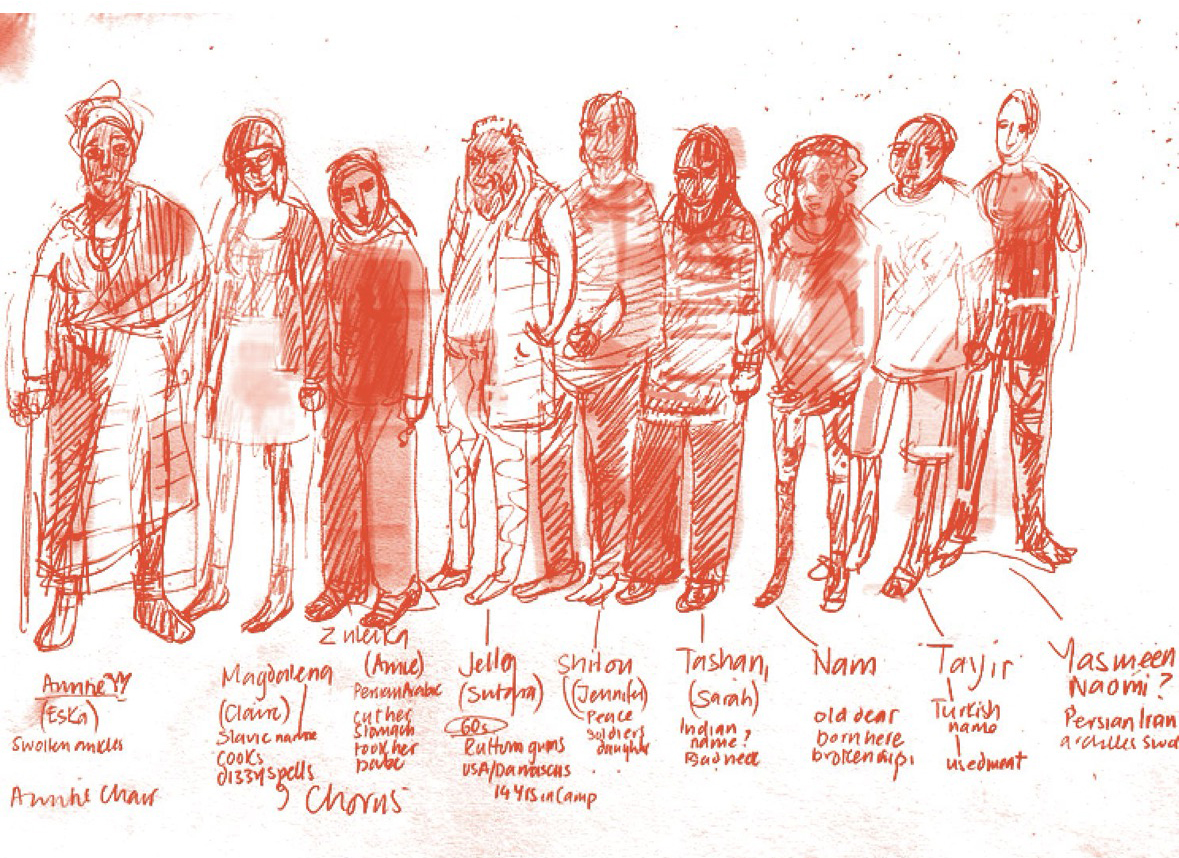 Auntie
(Eska)
Swollen ankles
Auntie Chair
Magdalena
(Claire)
Slavic name
cooks
dizzy spells
Zuleika
(Annie)
Persian Arabic
cut her
stomach
took her
babe
9 Chorus
Jella
(Sutara)
60s
Rotten gums
USA/Damascus
14 yrs in camp
Shiloh
(Jennifer)
Peace
Soldiers
daughter
Tashani
(Sarah)
Indian
name?
Bad neck
Nam
old dear
born here
broken hip
Tayir
Turkish
name
Yasmeen
Naomi?
Persian Iran
achilles